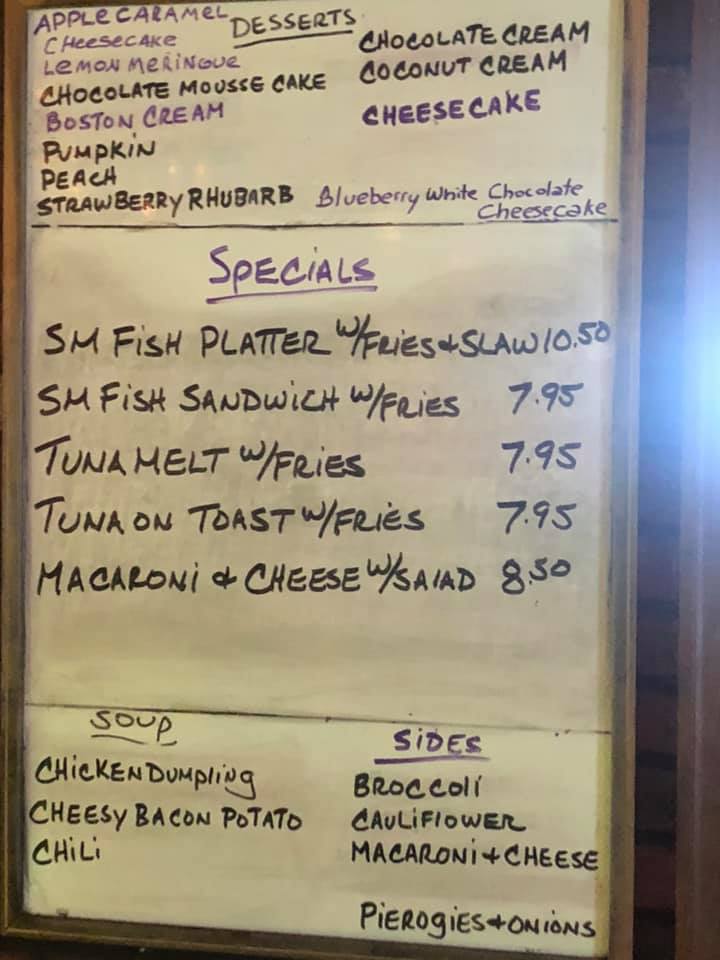 DESSERTS
APPLE CARAMEL
CHEESECAKE
LEMON MERINGUE
CHOCOLATE MOUSSE CAKE
BOSTON CREAM
PUMPKIN
PEACH
STRAWBERRY RHUBARB
CHOCOLATE CREAM
COCONUT CREAM
CHEESECAKE
Blueberry White Chocolate
Cheesecake
SPECIALS
SM FISH PLATTER W/FRIES & SLAW 10.50
SM FISH SANDWICH W/FRIES 7.95
TUNA MELT W/FRIES 7.95
TUNA ON TOAST W/FRIES 7.95
MACARONI & CHEESE W/SALAD 8.50
SOUP
CHICKEN DUMPLING
CHEESY BACON POTATO
CHILI
SIDES
BROCCOLI
CAULIFLOWER
MACARONI + CHEESE
PIEROGIES + ONIONS